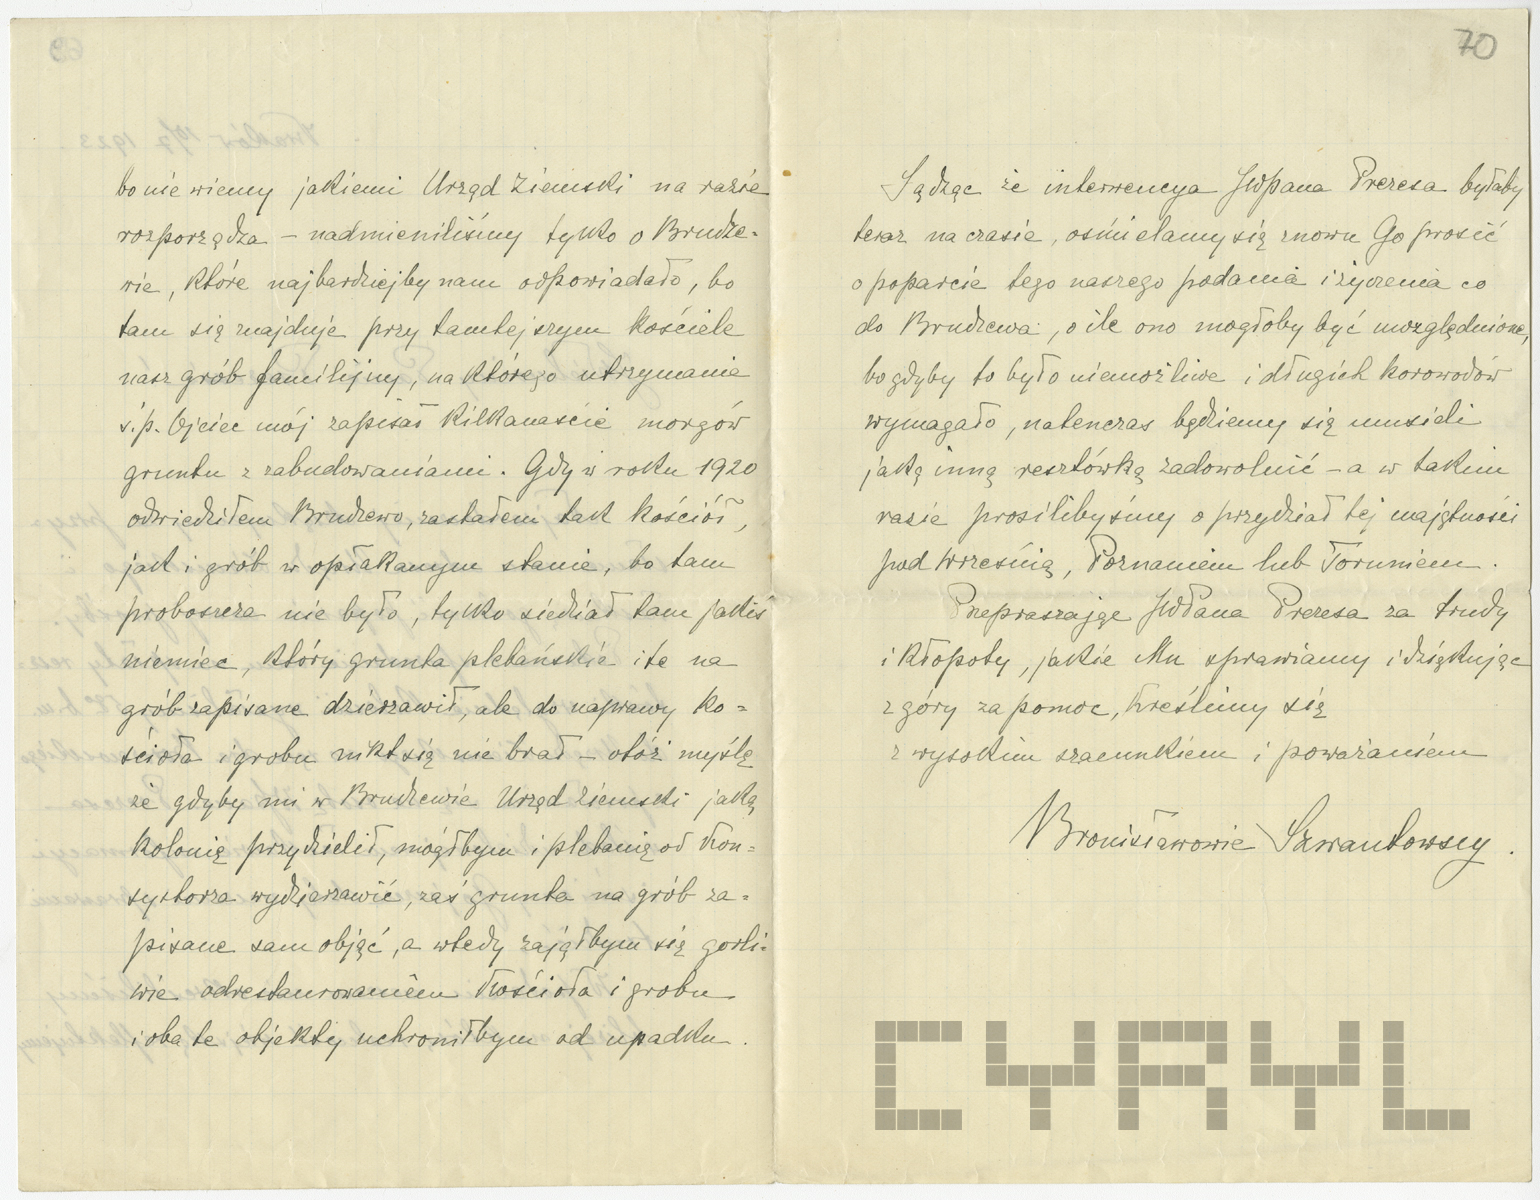 bo nie wiemy jakiemi Urząd Ziemski na razie
rozporządza – nadmieniliśmy tylko o Brudze=
wie, które najbardziejby nam odpowiadało, bo
tam się znajduje przy tamtejszym kościele
nasz grób familijny, na którego utrzymanie
ś.p. Ojciec mój zapisał kilkanaście morgów
gruntu z zabudowaniami. Gdy w roku 1920
odwiedziłem Brudzewo, zastałem tak kościół,
jak i grób w opłakanym stanie, bo tam
proboszcza nie było, tylko siedział tam jakiś
niemiec, który grunta plebańskie i te na
grób zapisane dzierzawił, ale do naprawy ko=
ścioła i grobu nikt się nie brał – otóż myślę
że gdyby mi w Brudzewie Urząd Ziemski jaką
kolonię przydzielił, mógłbym i plebanię od Kon=
systorza wydzierzawić, zaś grunta na grób za=
pisane sam objąć, a wtedy zająłbym się gorli=
wie odrestaurowaniem kościoła i grobu
i oba te objekty uchroniłbym od upadku.
70
Sądząc że interwencya JWPana Prezesa byłaby
teraz na czasie, ośmielamy się znowu Go prosić
o poparcie tego naszego podania i życzenia co
do Brudzewa, o ile ono mogłoby być uwzględnione,
bo gdyby to było niemożliwe i długich korowodów
wymagało, natenczas będziemy się musieli
jaką inną resztówką zadowolnić – a w takim
razie prosilibyśmy o przydział tej majętności
pod Wrześnią, Poznaniem lub Toruniem.
Przepraszając JWPana Prezesa za trudy
i kłopoty, jakie Mu sprawiamy i dziękując
z góry za pomoc, kreślimy się
z wysokim szacunkiem i poważaniem
Bronisławowie Szwantowscy.
CYRYL